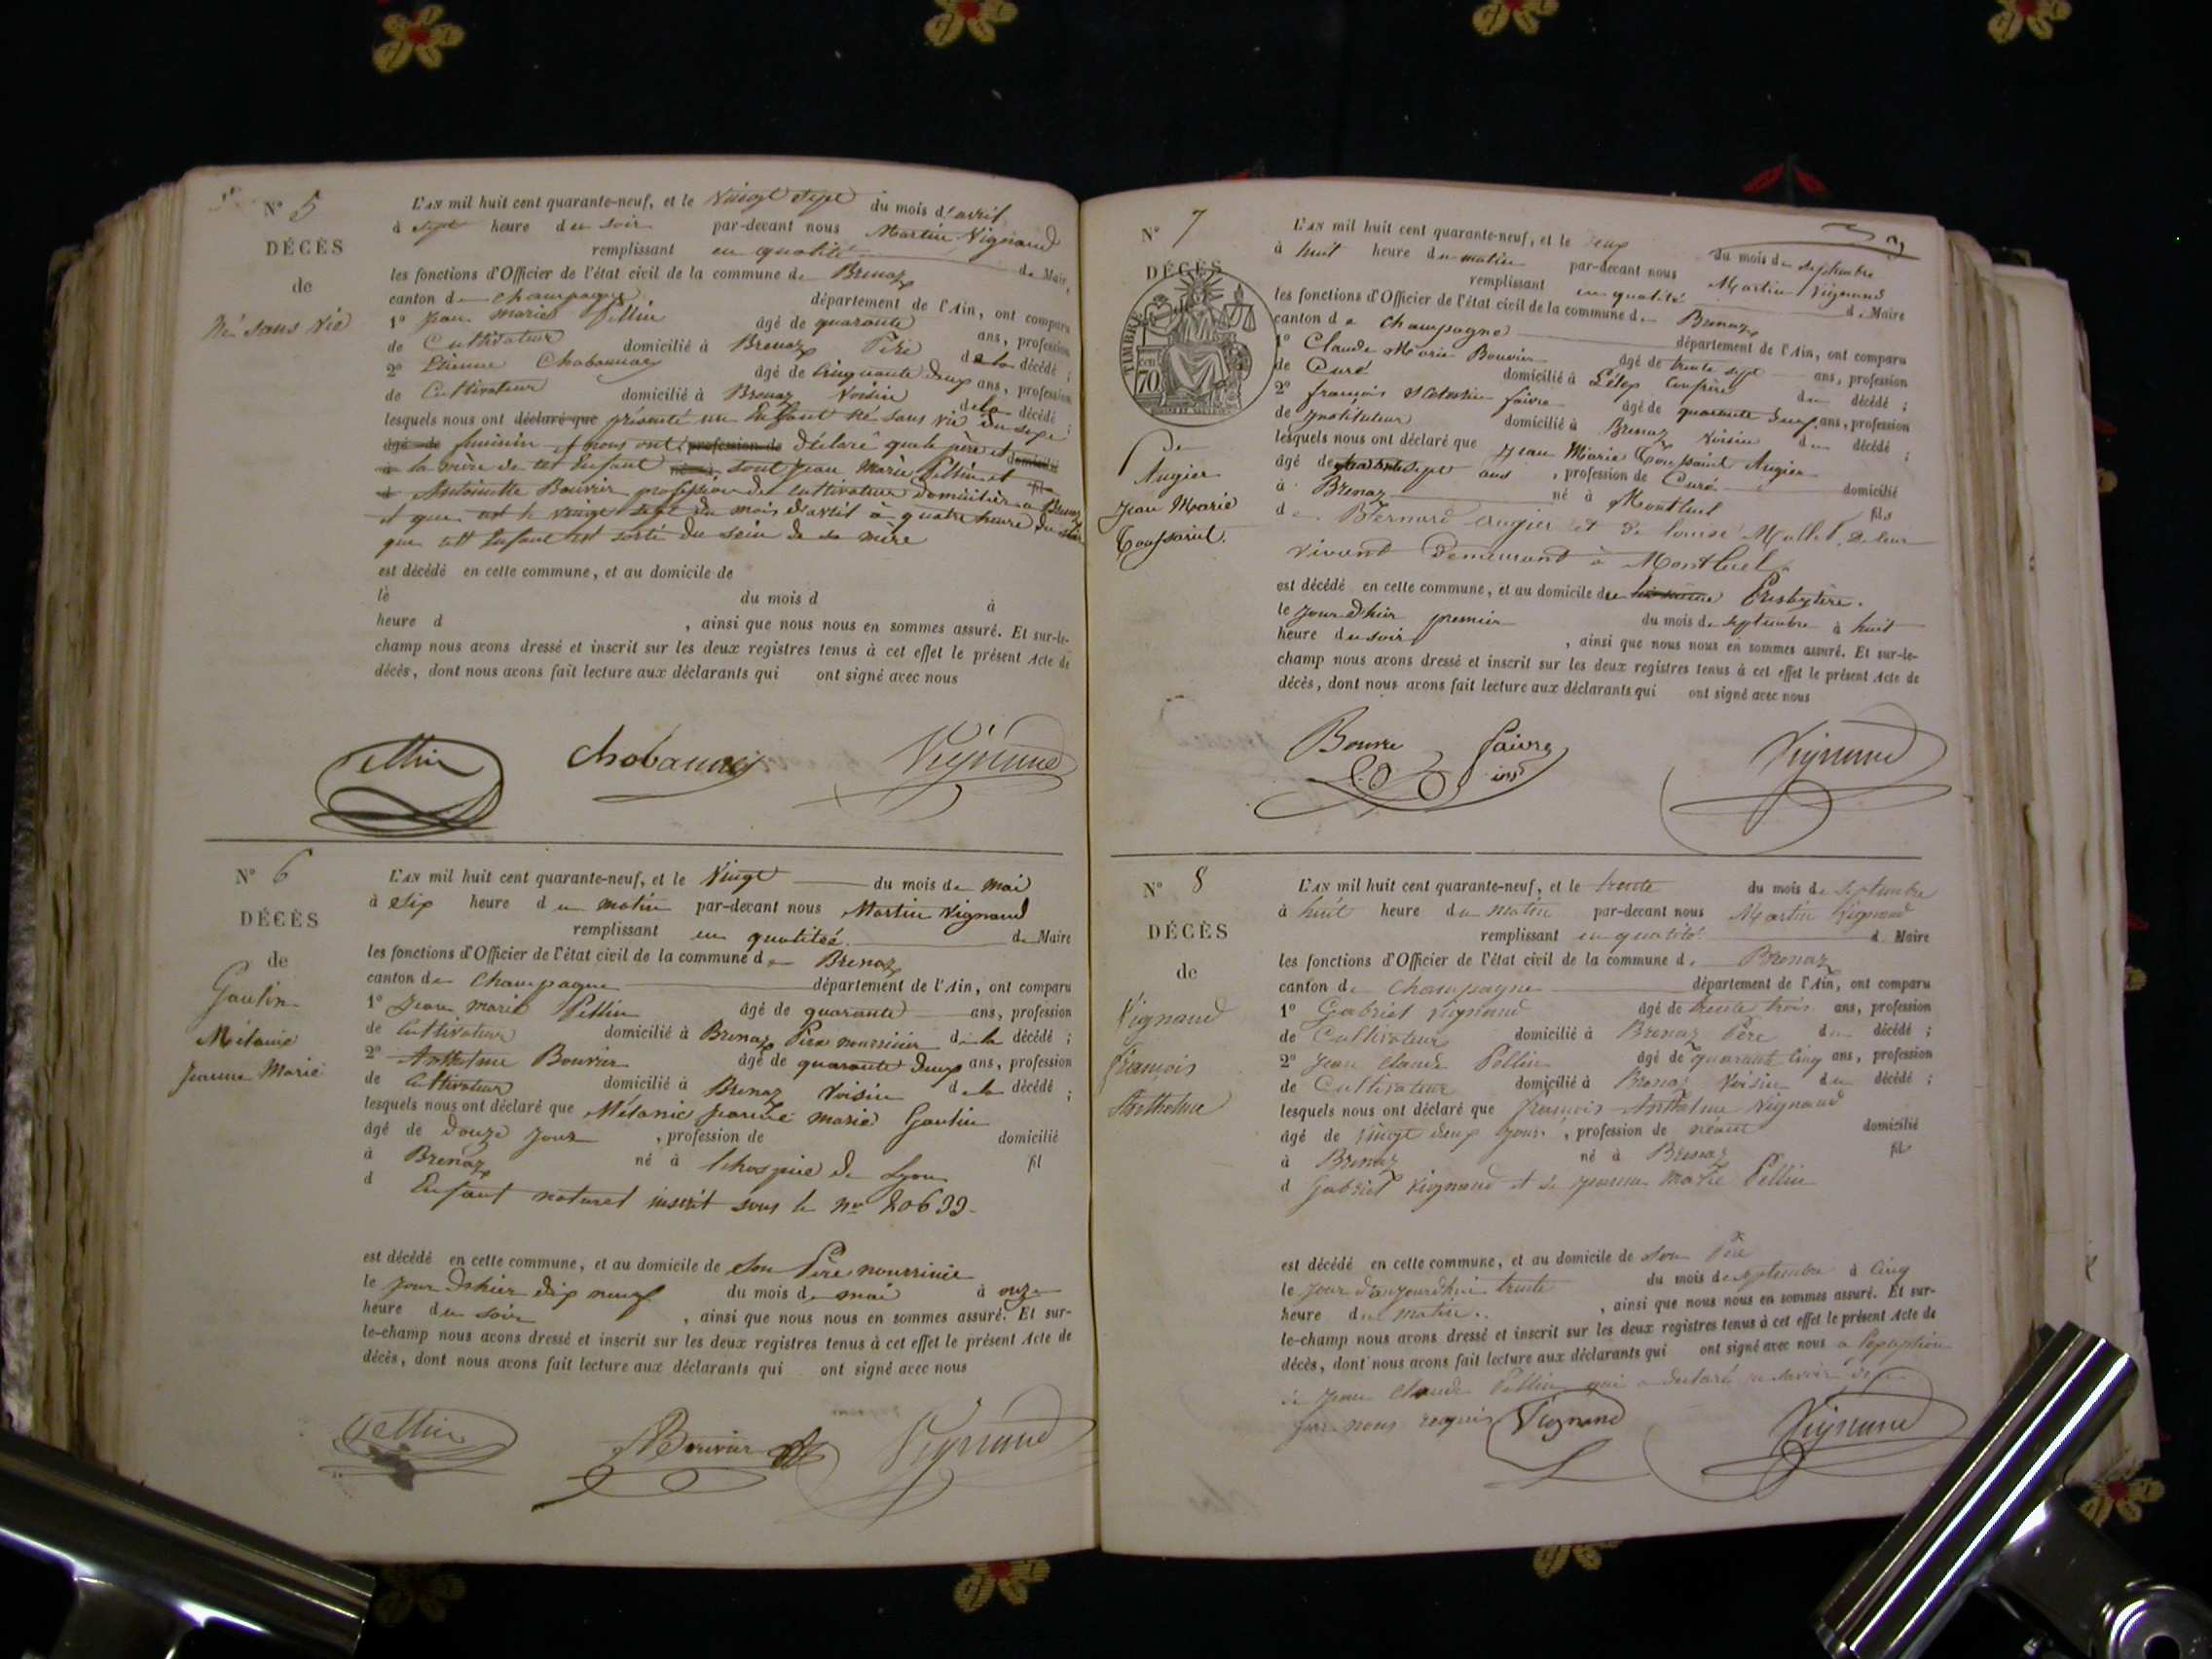 N° 5
DÉCÈS
de
Né sans vie
L'AN mil huit cent quarante-neuf, et le Vingt sept du mois d'avril
à sept heure du soir par-devant nous Martin Vignand
remplissant en qualité de Maire,
les fonctions d'Officier de l'état civil de la commune de Brenaz
canton de champagne département de l'Ain, ont comparu
1° Jean marie Pellin âgé de quarante ans, profession
de Cultivateur domicilié à Brenaz Père de la décédé ;
2° Etienne Chabannay âgé de Cinquante deux ans, profession
de Cultivateur domicilié à Brenaz Voisin de la décédé ;
lesquels nous ont déclaré que présenté un Enfant Né sans vie du sexe
âgé de feminin et nous ont profession de déclaré que le père et domicilié
à la mère de cet Enfant sont Jean Marie Pellin et fil
d Antoinette Bouvier profession de cultivateur domiciliés à Brenaz
et que le vingt sept du mois d'avril à quatre heure du soir
que cet Enfant est sorti du sein de sa mère
est décédé en cette commune, et au domicile de
le du mois d à
heure d , ainsi que nous nous en sommes assuré. Et sur-le-
champ nous avons dressé et inscrit sur les deux registres tenus à cet effet le présent Acte de
décès, dont nous avons fait lecture aux déclarants qui ont signé avec nous
Pellin Chabannay Vignand
N° 6
DÉCÈS
de
Gautin
Mélanie
Jeanne Marie
L'AN mil huit cent quarante-neuf, et le Vingt du mois de mai
à six heure du matin par-devant nous Martin Vignand
remplissant en qualitée de Maire
les fonctions d'Officier de l'état civil de la commune de Brenaz
canton de Champagne département de l'Ain, ont comparu
1° Jean marie Pellin âgé de quarante ans, profession
de Cultivateur domicilié à Brenaz Père nourricier de la décédé ;
2° Anthelme Bouvier âgé de quarante deux ans, profession
de Cultivateur domicilié à Brenaz Voisin de la décédé ;
lesquels nous ont déclaré que Mélanie jeanne marie Gautin
âgé de douze jours , profession de domicilié
à Brenaz né à lchospice de Lyon fil
d Enfant naturel inscrit sous le no 20699
est décédé en cette commune, et au domicile de son Père nourricier
le jour d'hier dix neuf du mois de mai à onze
heure du soir , ainsi que nous nous en sommes assuré. Et sur-
le-champ nous avons dressé et inscrit sur les deux registres tenus à cet effet le présent Acte de
décès, dont nous avons fait lecture aux déclarants qui ont signé avec nous
Pellin ABouvier Vignand
N° 7
DÉCÈS
TIMBRE
70
de
Augier
Jean Marie
Toussaint.
L'AN mil huit cent quarante-neuf, et le deux du mois de septembre
à huit heure du matin par-devant nous Martin Vignand
remplissant en qualité de Maire
les fonctions d'Officier de l'état civil de la commune de Brenaz
canton de Champagne département de l'Ain, ont comparu
1° Claude Marie Bouvier âgé de trente sept ans, profession
de Curé domicilié à Lélex Confrère du décédé ;
2° françois faivre âgé de quarante deux ans, profession
de Instituteur domicilié à Brenaz Voisin du décédé ;
lesquels nous ont déclaré que Jean Marie Toussaint Augier
âgé de sept ans , profession de Curé domicilié
à Brenaz né à Montluel fils
de Bernard augier et de louise Mallet de leur
vivant demeurant à Montluel
est décédé en cette commune, et au domicile du Presbytère.
le jour d'hier premier du mois de septembre à huit
heure du soir , ainsi que nous nous en sommes assuré. Et sur-le-
champ nous avons dressé et inscrit sur les deux registres tenus à cet effet le présent Acte de
décès, dont nous avons fait lecture aux déclarants qui ont signé avec nous
Bouvie faivre inst Vignand
N° 8
DÉCÈS
de
Vignand
françois
Anthelme
L'AN mil huit cent quarante-neuf, et le trente du mois de Septembre
à huit heure du matin par-devant nous Martin Vignand
remplissant en qualité d Maire
les fonctions d'Officier de l'état civil de la commune de Brenaz
canton de Champagne département de l'Ain, ont comparu
1° Gabriel Vignand âgé de trente trois ans, profession
de Cultivateur domicilié à Brenaz Père du décédé ;
2° Jean Claude Pellin âgé de quarante Cinq ans, profession
de Cultivateur domicilié à Brenaz Voisin du décédé ;
lesquels nous ont déclaré que françois Anthelme Vignand
âgé de vingt deux jours , profession de néant domicilié
à Brenaz né à Brenaz fils
d Gabriel Vignand et de jeanne Marie Pellin
est décédé en cette commune, et au domicile de son Père
le jour d'aujourd'hui trente du mois de septembre à Cinq
heure du matin , ainsi que nous nous en sommes assuré. Et sur-
le-champ nous avons dressé et inscrit sur les deux registres tenus à cet effet le présent Acte de
décès, dont nous avons fait lecture aux déclarants qui ont signé avec nous a l'exception
de Jean Claude Pellin qui a déclaré ne savoir de
par nous requis Vignand Vignand